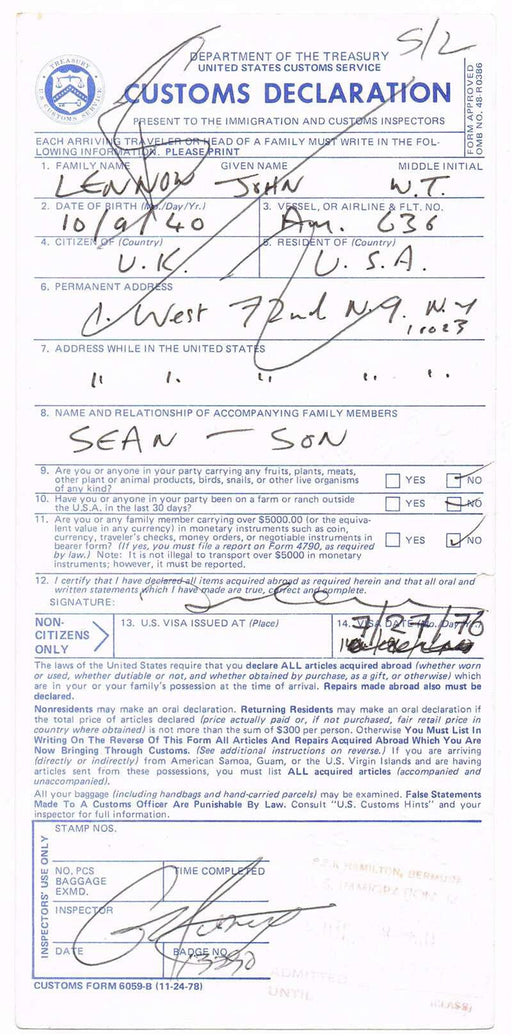 S/2
DEPARTMENT OF THE TREASURY
UNITED STATES CUSTOMS SERVICE
CUSTOMS DECLARATION
PRESENT TO THE IMMIGRATION AND CUSTOMS INSPECTORS
FORM APPROVED
OMB NO. 48-R0386
EACH ARRIVING TRAVELER OR HEAD OF A FAMILY MUST WRITE IN THE FOL-
LOWING INFORMATION. PLEASE PRINT
1. FAMILY NAME GIVEN NAME MIDDLE INITIAL
LENNON JOHN W.T.
2. DATE OF BIRTH (Mo./Day/Yr.) 3. VESSEL, OR AIRLINE & FLT. NO.
10/9/40 Am. 636
4. CITIZEN OF (Country) 5. RESIDENT OF (Country)
U.K. U.S.A.
6. PERMANENT ADDRESS
1. West 72nd N.Y. N.Y
10023
7. ADDRESS WHILE IN THE UNITED STATES
" " " " "
8. NAME AND RELATIONSHIP OF ACCOMPANYING FAMILY MEMBERS
SEAN - SON
9. Are you or anyone in your party carrying any fruits, plants, meats,
other plant or animal products, birds, snails, or other live organisms
of any kind? YES NO
10. Have you or anyone in your party been on a farm or ranch outside
the U.S.A. in the last 30 days? YES NO
11. Are you or any family member carrying over $5000.00 (or the equiva-
lent value in any currency) in monetary instruments such as coin,
currency, traveler's checks, money orders, or negotiable instruments in
bearer form? (If yes, you must file a report on Form 4790, as required
by law.) Note: It is not illegal to transport over $5000 in monetary
instruments; however, it must be reported. YES NO
12. I certify that I have declared all items acquired abroad as required herein and that all oral and
written statements which I have made are true, correct and complete.
SIGNATURE:
NON-
CITIZENS
ONLY
13. U.S. VISA ISSUED AT (Place) 14. VISA DATE (Mo./Day/Yr.)
7/27/76
The laws of the United States require that you declare ALL articles acquired abroad (whether worn
or used, whether dutiable or not, and whether obtained by purchase, as a gift, or otherwise) which
are in your or your family's possession at the time of arrival. Repairs made abroad also must be
declared.
Nonresidents may make an oral declaration. Returning Residents may make an oral declaration if
the total price of articles declared (price actually paid or, if not purchased, fair retail price in
country where obtained) is not more than the sum of $300 per person. Otherwise You Must List In
Writing On The Reverse Of This Form All Articles And Repairs Acquired Abroad Which You Are
Now Bringing Through Customs. (See additional instructions on reverse.) If you are arriving
(directly or indirectly) from American Samoa, Guam, or the U.S. Virgin Islands and are having
articles sent from these possessions, you must list ALL acquired articles (accompanied and
unaccompanied).
All your baggage (including handbags and hand-carried parcels) may be examined. False Statements
Made To A Customs Officer Are Punishable By Law. Consult "U.S. Customs Hints" and your
inspector for full information.
INSPECTORS' USE ONLY
STAMP NOS.
NO. PCS
BAGGAGE
EXMD.
TIME COMPLETED
INSPECTOR
DATE BADGE NO.
13390
HAMILTON, BERMUDA
ADMITTED
UNTIL
CUSTOMS FORM 6059-B (11-24-78)